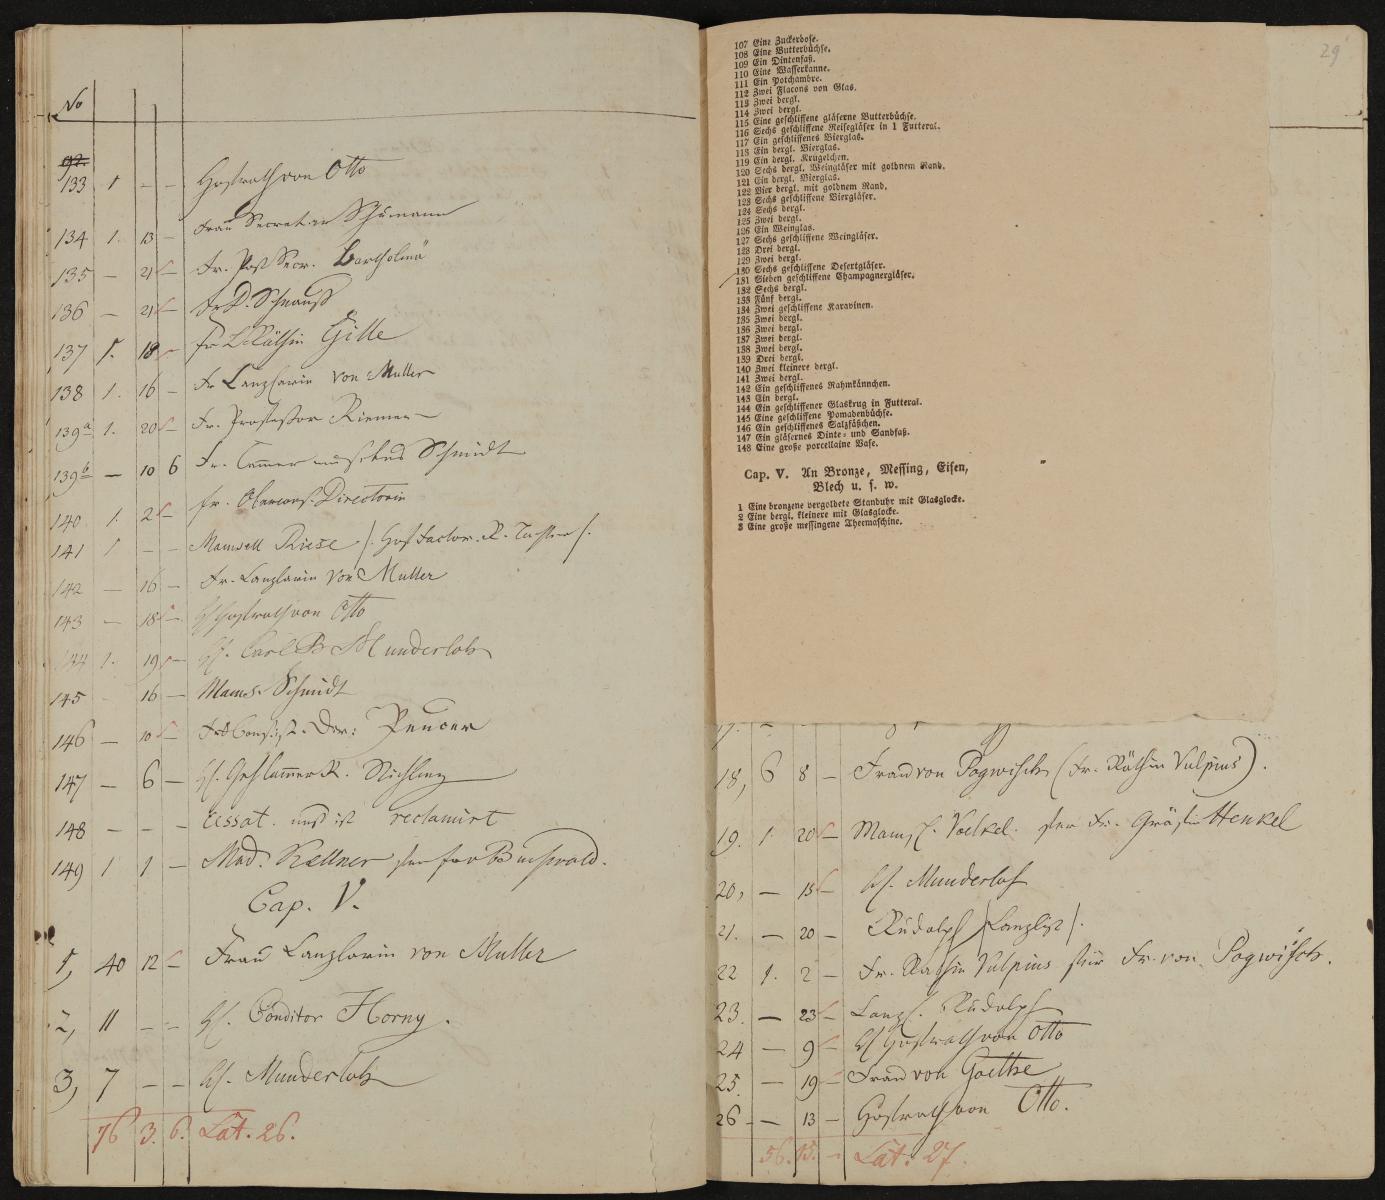 No
92.
133 1 – – Hofrath von Otto
134 1. 13 – Frau Secretair Schumann
135 – 21 – Fr. Post Secr. Bartholmä
136 – 21 – Fr D. Schnauß
137 1. 18 – Fr L. Räthin Gille
138 1. 16 – Fr Canzlarin von Muller
139a 1. 20 – Fr. Professor Riemer
139b – 10 6 Fr. Cammermusikus Schmidt
140 1. 2 – Fr. Directorin
141 1 – – Mamsell Riese
142 – 16 – Fr. Canzlarin von Muller
143 – 18 – H Hofrath von Otto
144 1. 19 – H. Carl B Munderloh
145 – 16 – Mams. Schmidt
146 – 10 – Peucer
147 – 6 – H. Geh Cammer R.
148 – – – Cessat. und ist reclamirt
149 1 1 – Mad. Kellner
Cap. V.
1, 40 12 – Frau Canzlarin von Muller
2, 11 – – H. Conditor Horny.
3, 7 – – H. Munderloh
76 3. 6. Lat. 26.
29
107 Eine Zuckerdose.
108 Eine Butterbüchse.
109 Ein Dintenfaß.
110 Eine Wasserkanne.
111 Ein Potchambre.
112 Zwei Flacons von Glas.
113 Zwei dergl.
114 Zwei dergl.
115 Eine geschliffene gläserne Butterbüchse.
116 Sechs geschliffene Reisegläser in 1 Futteral.
117 Ein geschliffenes Bierglas.
118 Ein dergl. Bierglas.
119 Ein dergl. Krügelchen.
120 Sechs dergl. Weingläser mit goldnem Rand.
121 Ein dergl. Bierglas.
122 Vier dergl. mit goldnem Rand.
123 Sechs geschliffene Biergläser.
124 Sechs dergl.
125 Zwei dergl.
126 Ein Weinglas.
127 Sechs geschliffene Weingläser.
128 Drei dergl.
129 Zwei dergl.
130 Sechs geschliffene Desertgläser.
131 Sieben geschliffene Champagnergläser.
132 Sechs dergl.
133 Fünf dergl.
134 Zwei geschliffene Karavinen.
135 Zwei dergl.
136 Zwei dergl.
137 Zwei dergl.
138 Zwei dergl.
139 Drei dergl.
140 Zwei kleinere dergl.
141 Zwei dergl.
142 Ein geschliffenes Rahmkännchen.
143 Ein dergl.
144 Ein geschliffener Glaskrug in Futteral.
145 Eine geschliffene Pomadenbüchse.
146 Ein geschliffenes Salzfäßchen.
147 Ein gläsernes Dinte- und Sandfaß.
148 Eine große porcellaine Vase.
Cap. V. An Bronze, Messing, Eisen,
Blech u. s. w.
1 Eine bronzene vergoldete Standuhr mit Glasglocke.
2 Eine dergl. kleinere mit Glasglocke.
3 Eine große messingene Theemaschine.
17. –
18, 6 8 – Frau von Pogwisch (Fr. Räthin Vulpius).
19. 1. 20 – Mamsl. Voelkel. für Fr. Gräfin Henkel
20, – 13 – H. Munderloh
21. – 20 – Rudolph /Canzlist/.
22 1. 2 – Fr. Rathin Vulpius für Fr. von Pogwisch.
23. – 23 – Canzl. Rudolph
24 – 9 – H Hofrath von Otto
25. – 19 – Frau von Goethe
26 – 13 – Hofrath von Otto.
56. 15. – Lat. 27.